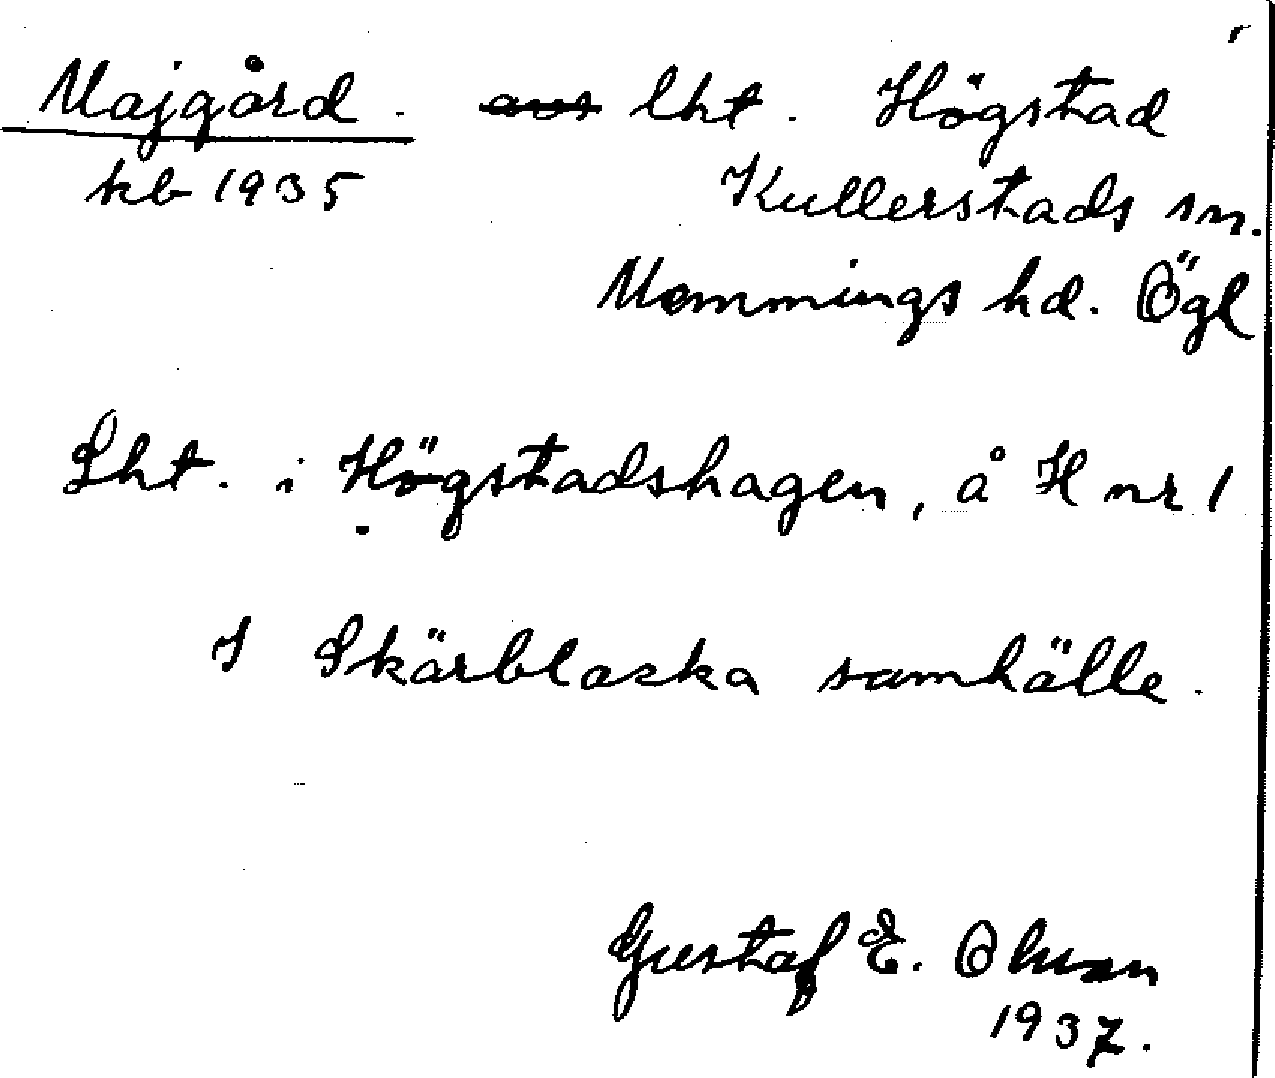 Majgård. lht. Högstad
kb 1935 Kullerstads sn.
Memmings hd. Ögl
Lht. i Högstadshagen, å H nr 1
I Skärblacka samhälle.
Gustaf E.
1937.